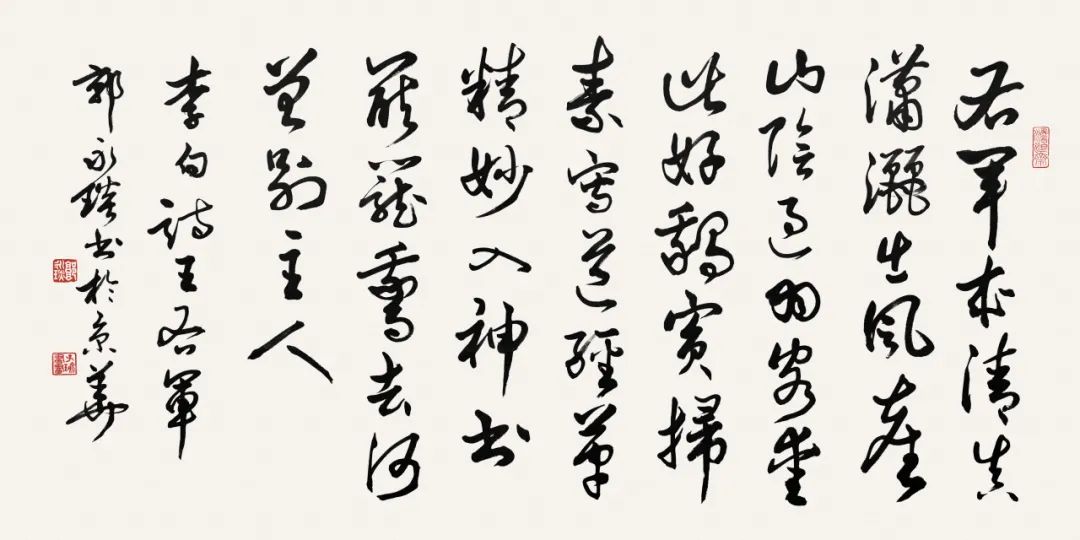 右軍本清真
瀟灑出風塵
山陰過羽客愛
此好鵝賓掃
素寫道經筆
精妙入神書
罷籠鵝去何
曾別主人
李白詩王右軍
郭永琰書於京華